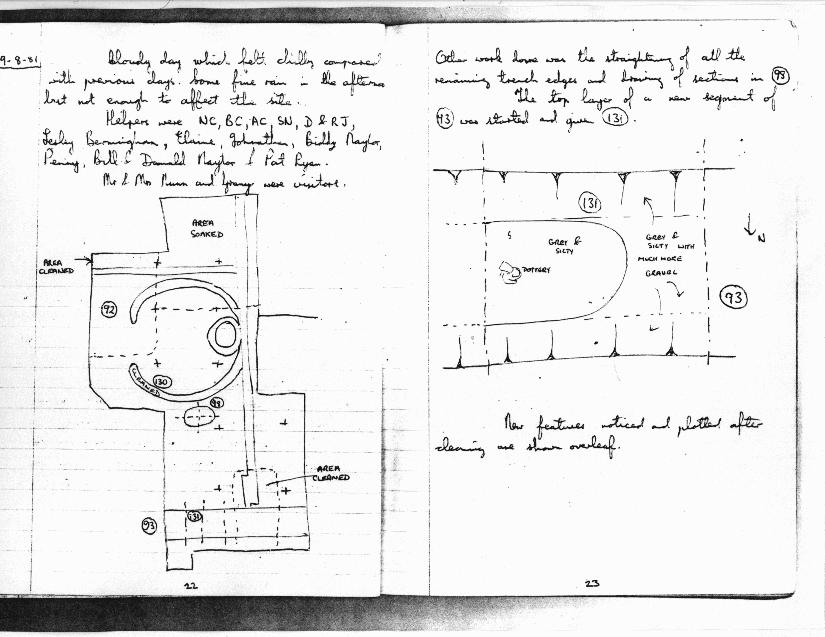 9-8-81
Cloudy day which felt chilly compared
with previous days. Some fine rain in the afternoon
but not enough to affect the site.
Helpers were NC, BC, AC, SN, D & RJ,
Lesley Bermingham, Elaine, Johnathan, Biddy Naylor,
Penny, Bill & Donald Naylor & Pat Ryan.
Mr & Mrs Nunn and family were visitors.
AREA
SOAKED
AREA
CLEANED
92
130
CLEANED
98
AREA
CLEANED
93
131
22
Other work done was the straightening of all the
remaining trench edges and drawing of sections in 98
The top layer of a new segment of
93 was started and given 131.
131
GREY &
SILTY
POTTERY
GREY &
SILTY WITH
MUCH MORE
GRAVEL
N
93
New features noticed and plotted after
cleaning are shown overleaf.
23